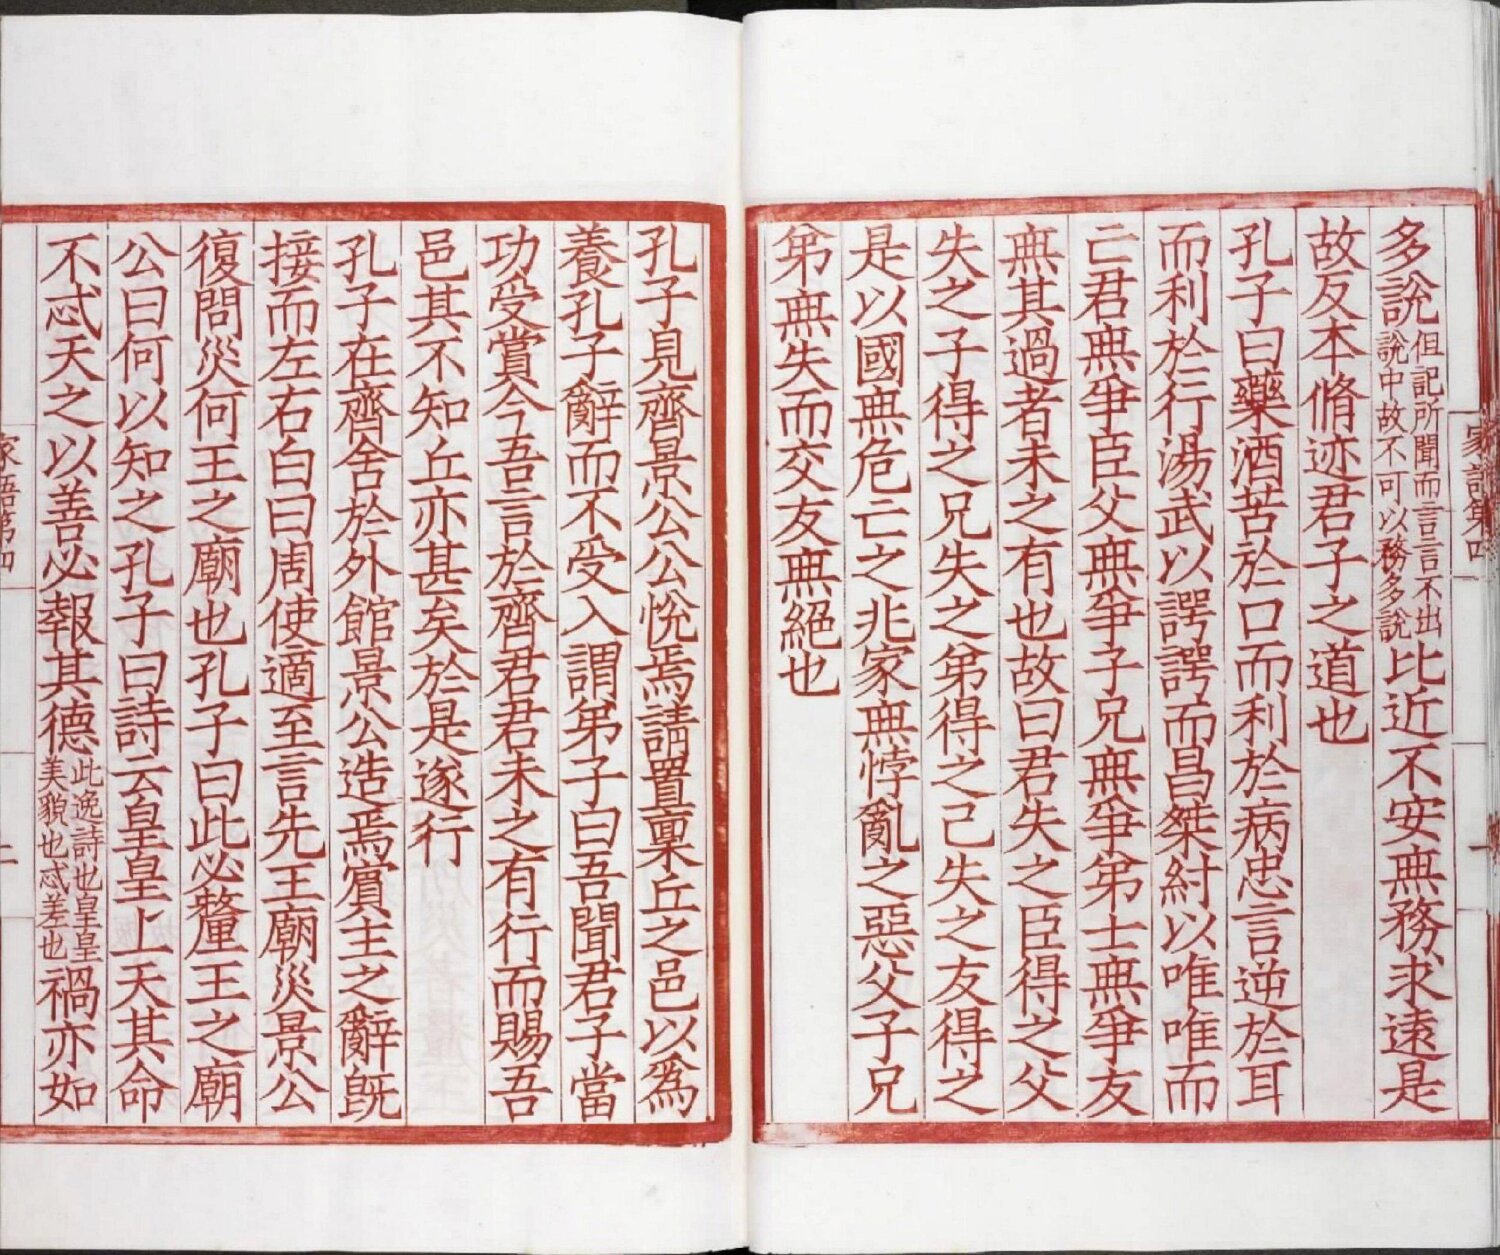 多說但記所聞而言言不出說中故不可以務多說比近不安無務求遠是
故反本脩迹君子之道也
孔子曰藥酒苦於口而利於病忠言逆於耳
而利於行湯武以諤諤而昌桀紂以唯唯而
亡君無爭臣父無爭子兄無爭弟士無爭友
無其過者未之有也故曰君失之臣得之父
失之子得之兄失之弟得之己失之友得之
是以國無危亡之兆家無悖亂之惡父子兄
弟無失而交友無絕也
孔子見齊景公公悅焉請置稟丘之邑以爲
養孔子辭而不受入謂弟子曰吾聞君子當
功受賞今吾言於齊君君未之有行而賜吾
邑其不知丘亦甚矣於是遂行
孔子在齊舍於外館景公造焉賓主之辭旣
接而左右白曰周使適至言先王廟災景公
復問災何王之廟也孔子曰此必釐王之廟
公曰何以知之孔子曰詩云皇皇上天其命
不忒天之以善必報其德此逸詩也皇皇美貌也忒差也禍亦如
家語第四
二